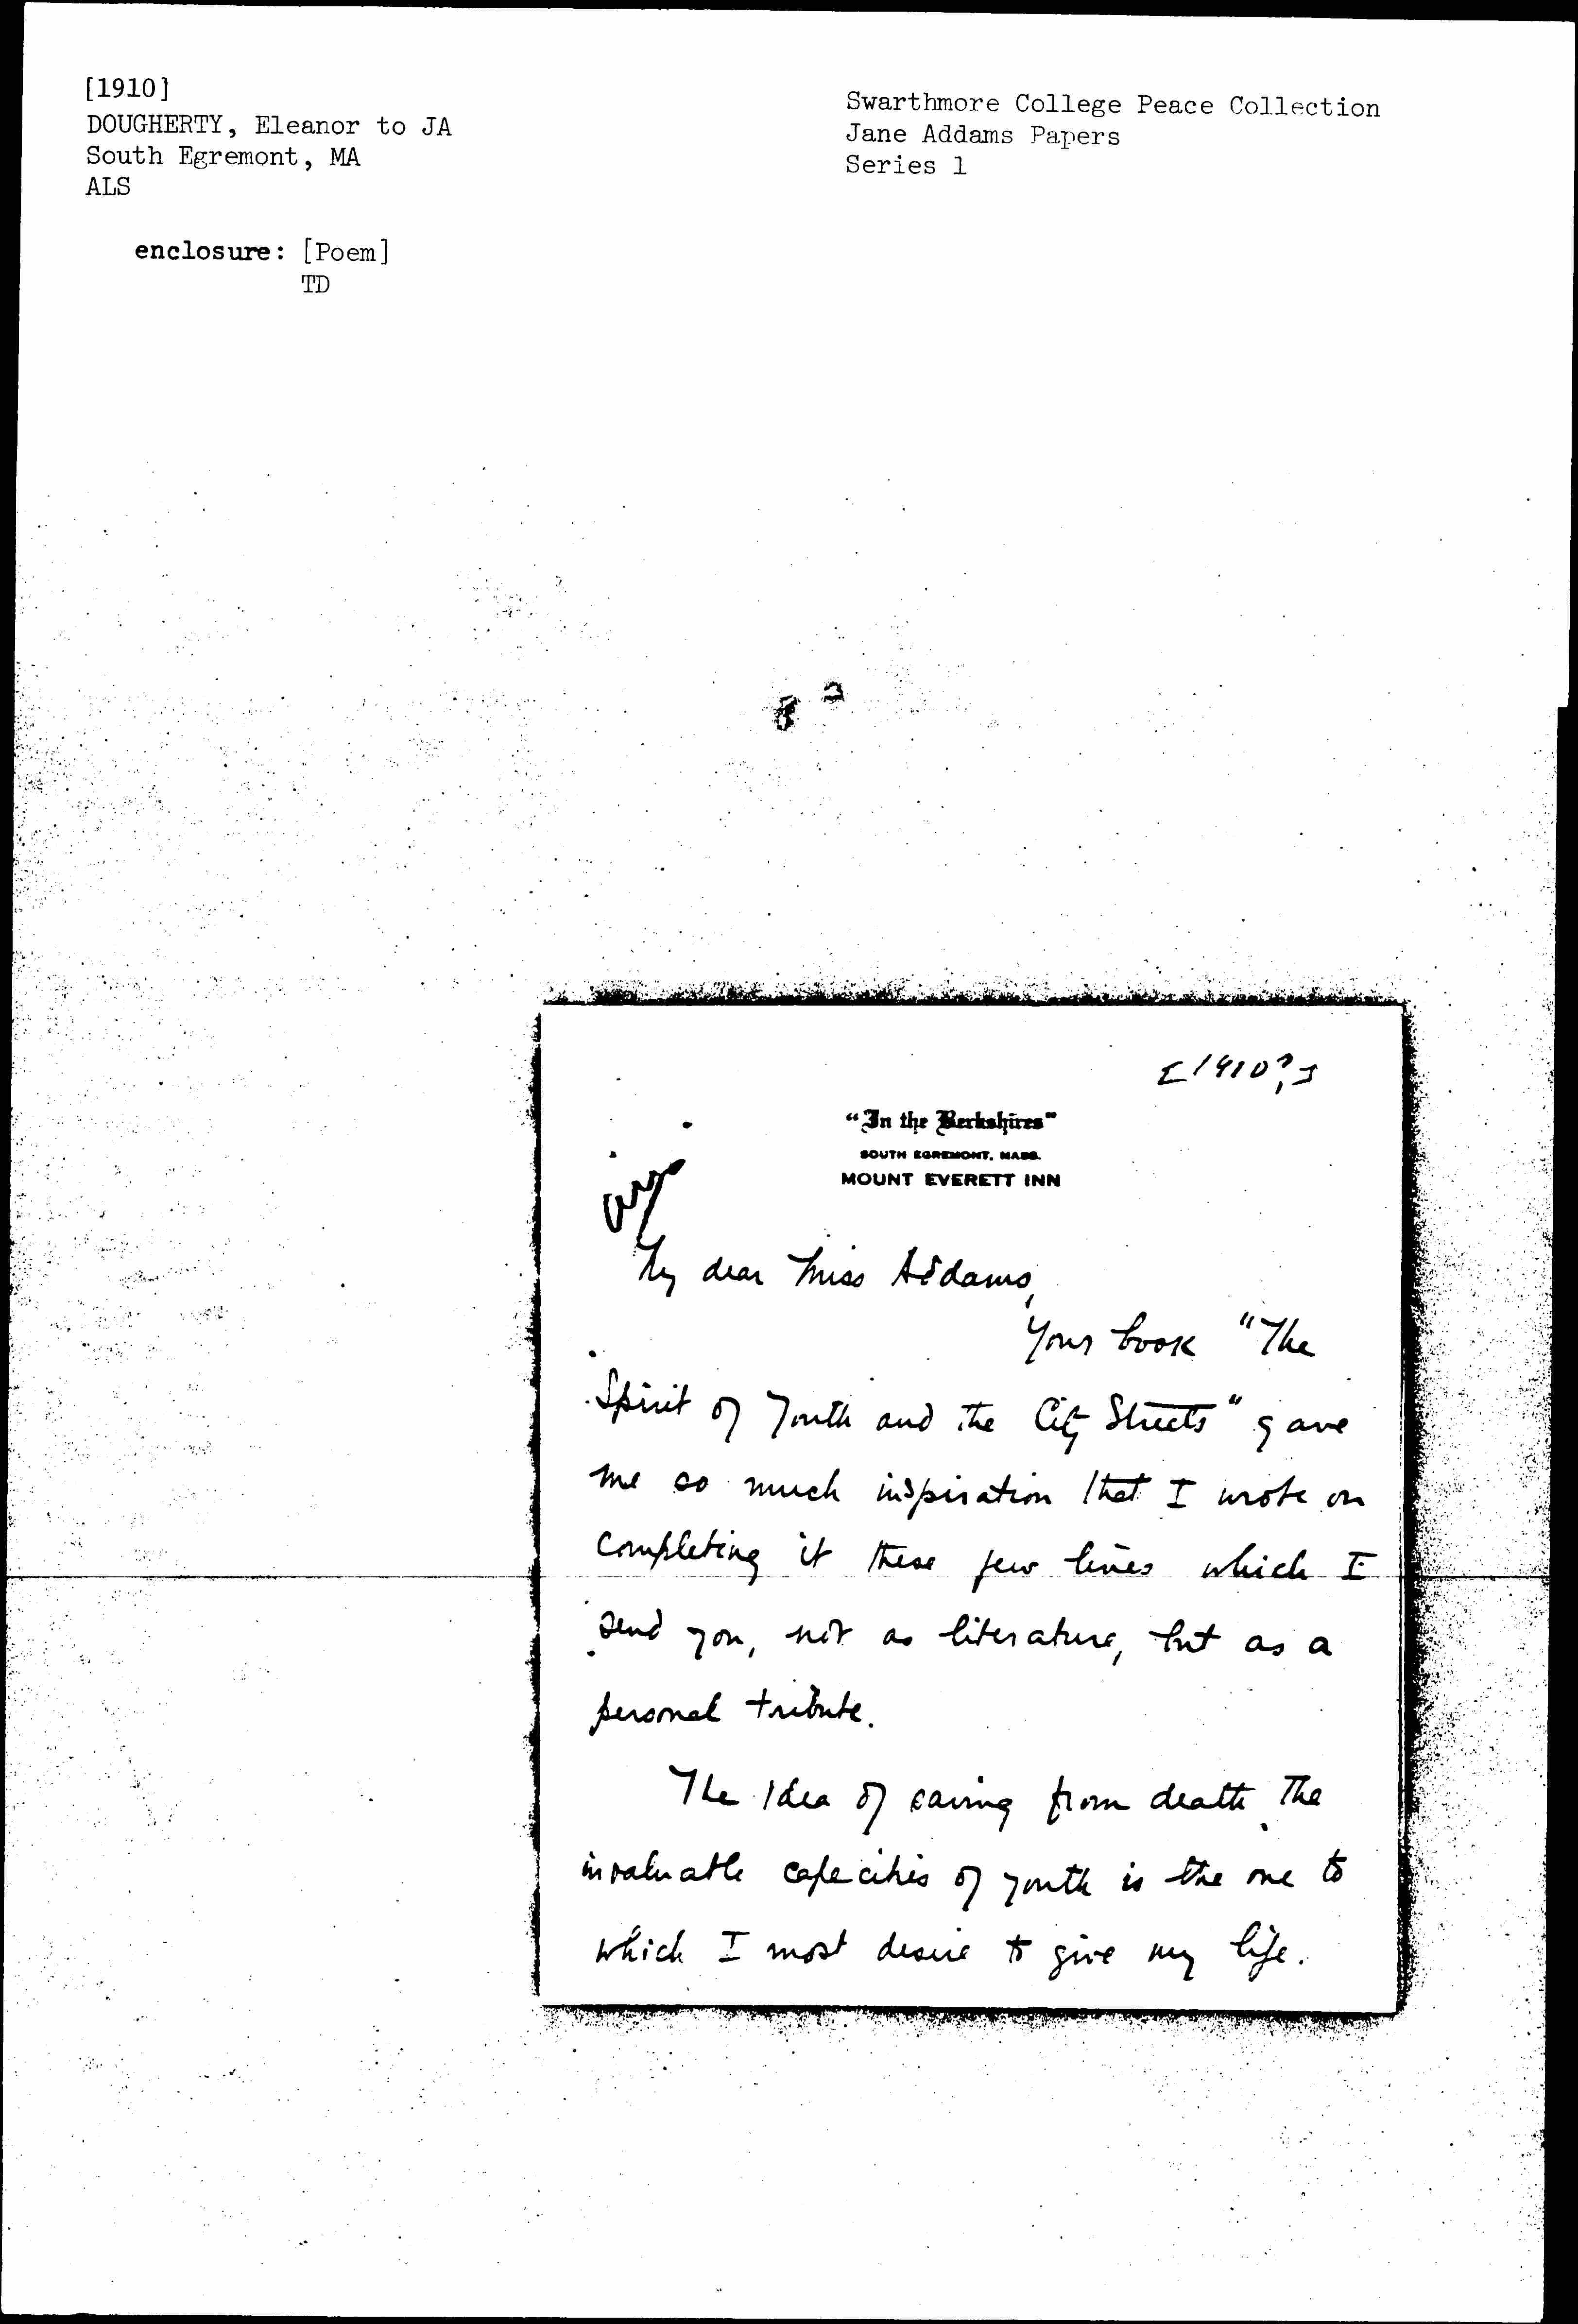 [1910]
DOUGHERTY, Eleanor to JA
South Egremont, MA
ALS
enclosure: [Poem]
TD
Swarthmore College Peace Collection
Jane Addams Papers
Series 1
[1910?]
"In the Berkshires"
SOUTH EGREMONT, MASS.
MOUNT EVERETT INN
My dear Miss Addams,
Your book "The
Spirit of Youth and the City Streets" gave
me so much inspiration that I wrote on
completing it these few lines which I
send you, not as literature, but as a
personal tribute.
The idea of saving from death the
invaluable capacities of youth is the one to
which I most desire to give my life.